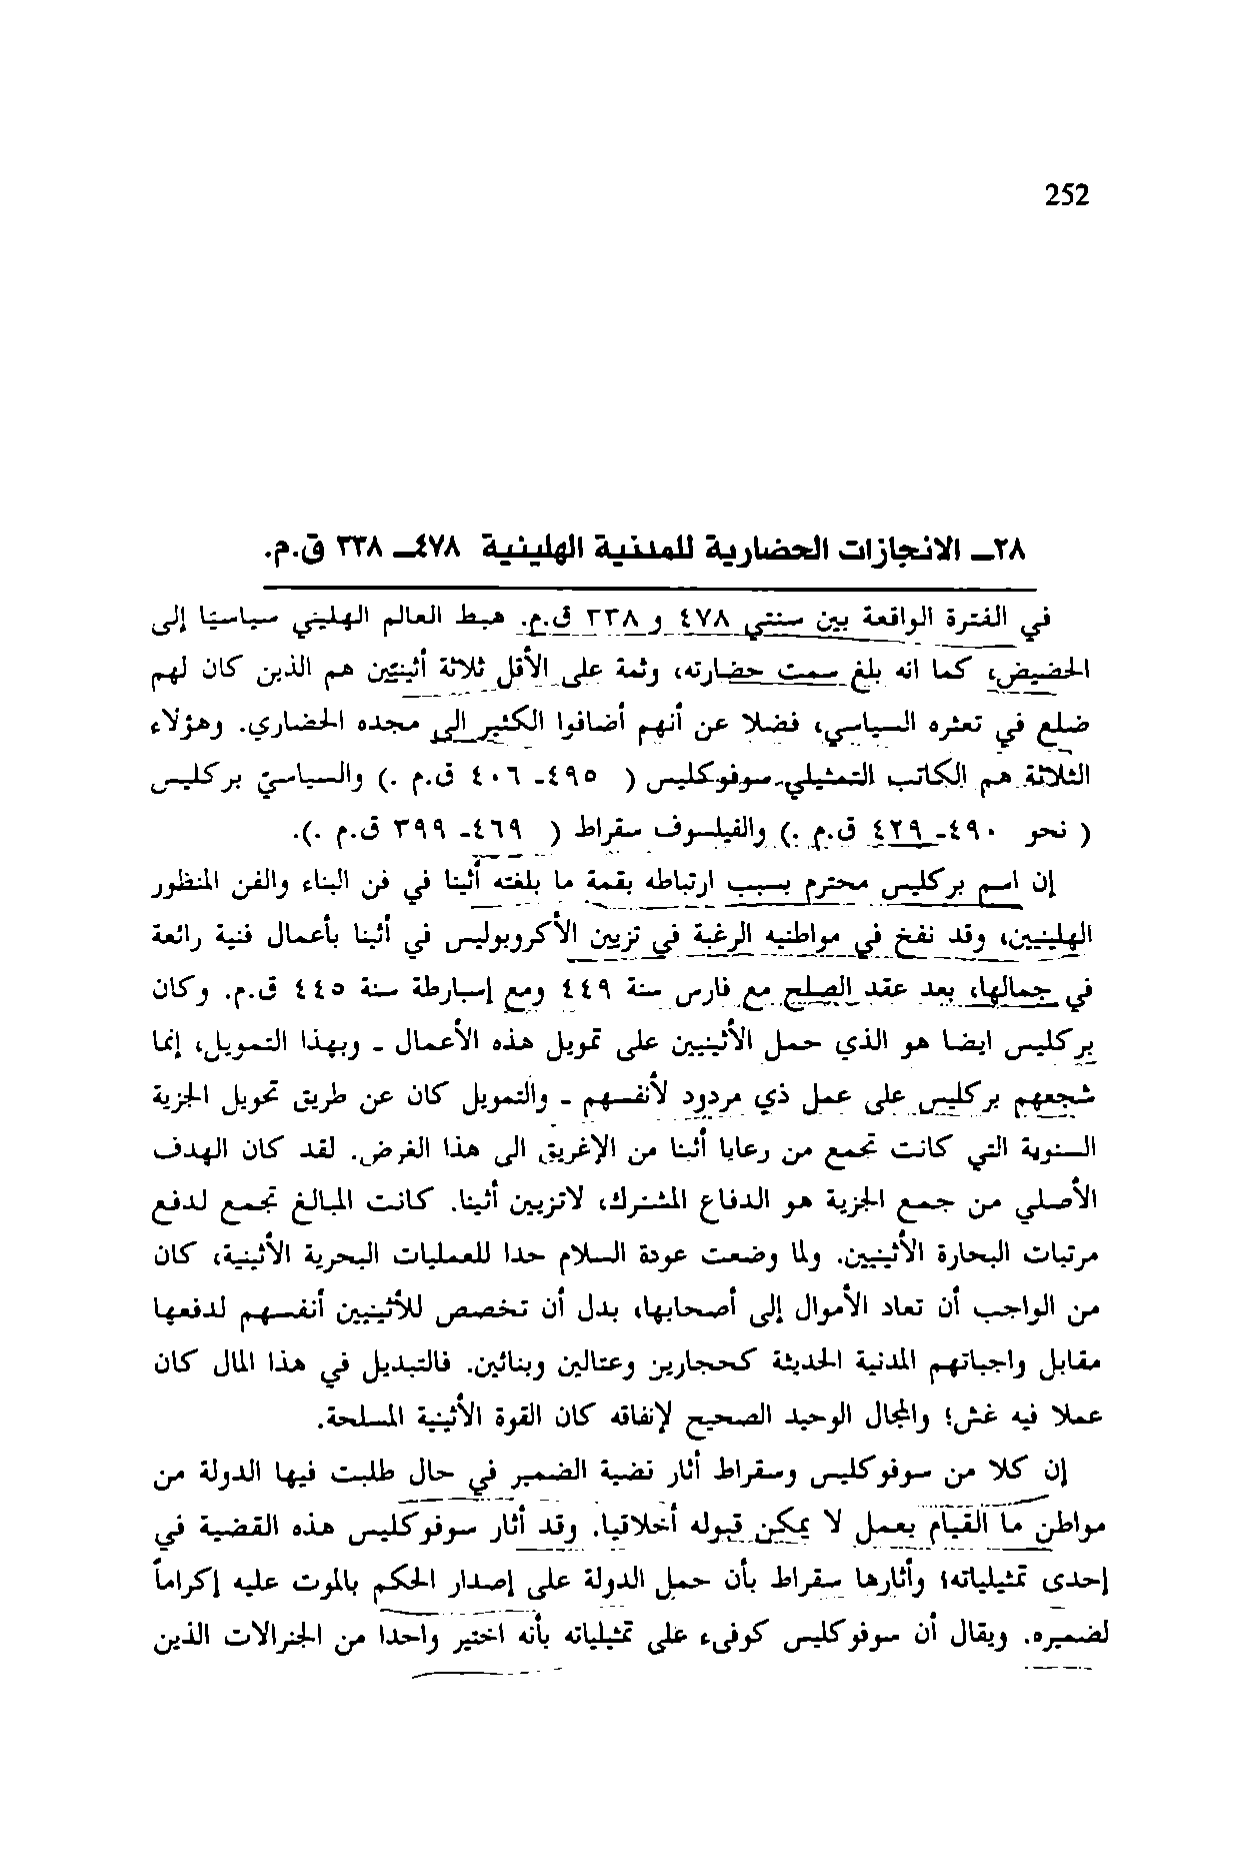 252
٢٨ـ الانجازات الحضارية للمدنية الهلينية ٤٧٨ـ ٣٣٨ ق.م.
في الفترة الواقعة بين سنتي ٤٧٨ و ٣٣٨ ق.م. هبط العالم الهليني سياسيّا إلى
الحضيض، كما انه بلغ سمت حضارته، وثمة على الأقل ثلاثة أثينيّين هم الذين كان لهم
ضلع في تعثره السياسي، فضلا عن أنهم أضافوا الكثير الى مجده الحضاري. وهؤلاء
الثلاثة هم الكاتب التمثيلي سوفوكليس ( ٤٩٥- ٤٠٦ ق.م .) والسياسيّ بركليس
( نحو ٤٩٠- ٤٢٩ ق.م .) والفيلسوف سقراط ( ٤٦٩- ٣٩٩ ق.م .).
إن اسم بركليس محترم بسبب ارتباطه بقمة ما بلغته أثينا في فن البناء والفن المنظور
الهلينيين، وقد نفخ في مواطنيه الرغبة في تزيين الأكروبوليس في أثينا بأعمال فنية رائعة
في جمالها، بعد عقد الصلح مع فارس سنة ٤٤٩ ومع إسبارطة سنة ٤٤٥ ق.م. وكان
بركليس ايضا هو الذي حمل الأثينيين على تمويل هذه الأعمال - وبهذا التمويل، إنما
شجعهم بركليس على عمل ذي مردود لأنفسهم - والتمويل كان عن طريق تحويل الجزية
السنوية التي كانت تجمع من رعايا أثينا من الإغريق الى هذا الغرض. لقد كان الهدف
الأصلي من جمع الجزية هو الدفاع المشترك، لاتزيين أثينا. كانت المبالغ تجمع لدفع
مرتبات البحارة الأثينيين. ولما وضعت عودة السلام حدا للعمليات البحرية الأثينية، كان
من الواجب أن تعاد الأموال إلى أصحابها، بدل أن تخصص للأثينيين أنفسهم لدفعها
مقابل واجباتهم المدنية الحديثة كحجارين وعتالين وبنائين. فالتبديل في هذا المال كان
عملا فيه غش؛ والمجال الوحيد الصحيح لإنفاقه كان القوة الأثينية المسلحة.
إن كلا من سوفوكليس وسقراط أثار قضية الضمير في حال طلبت فيها الدولة من
مواطن ما القيام بعمل لا يمكن قبوله أخلاقيا. وقد أثار سوفوكليس هذه القضية في
إحدى تمثيلياته؛ وأثارها سقراط بأن حمل الدولة على إصدار الحكم بالموت عليه إكراماً
لضميره. ويقال أن سوفوكليس كوفىء على تمثيلياته بأنه اختير واحدا من الجنرالات الذين